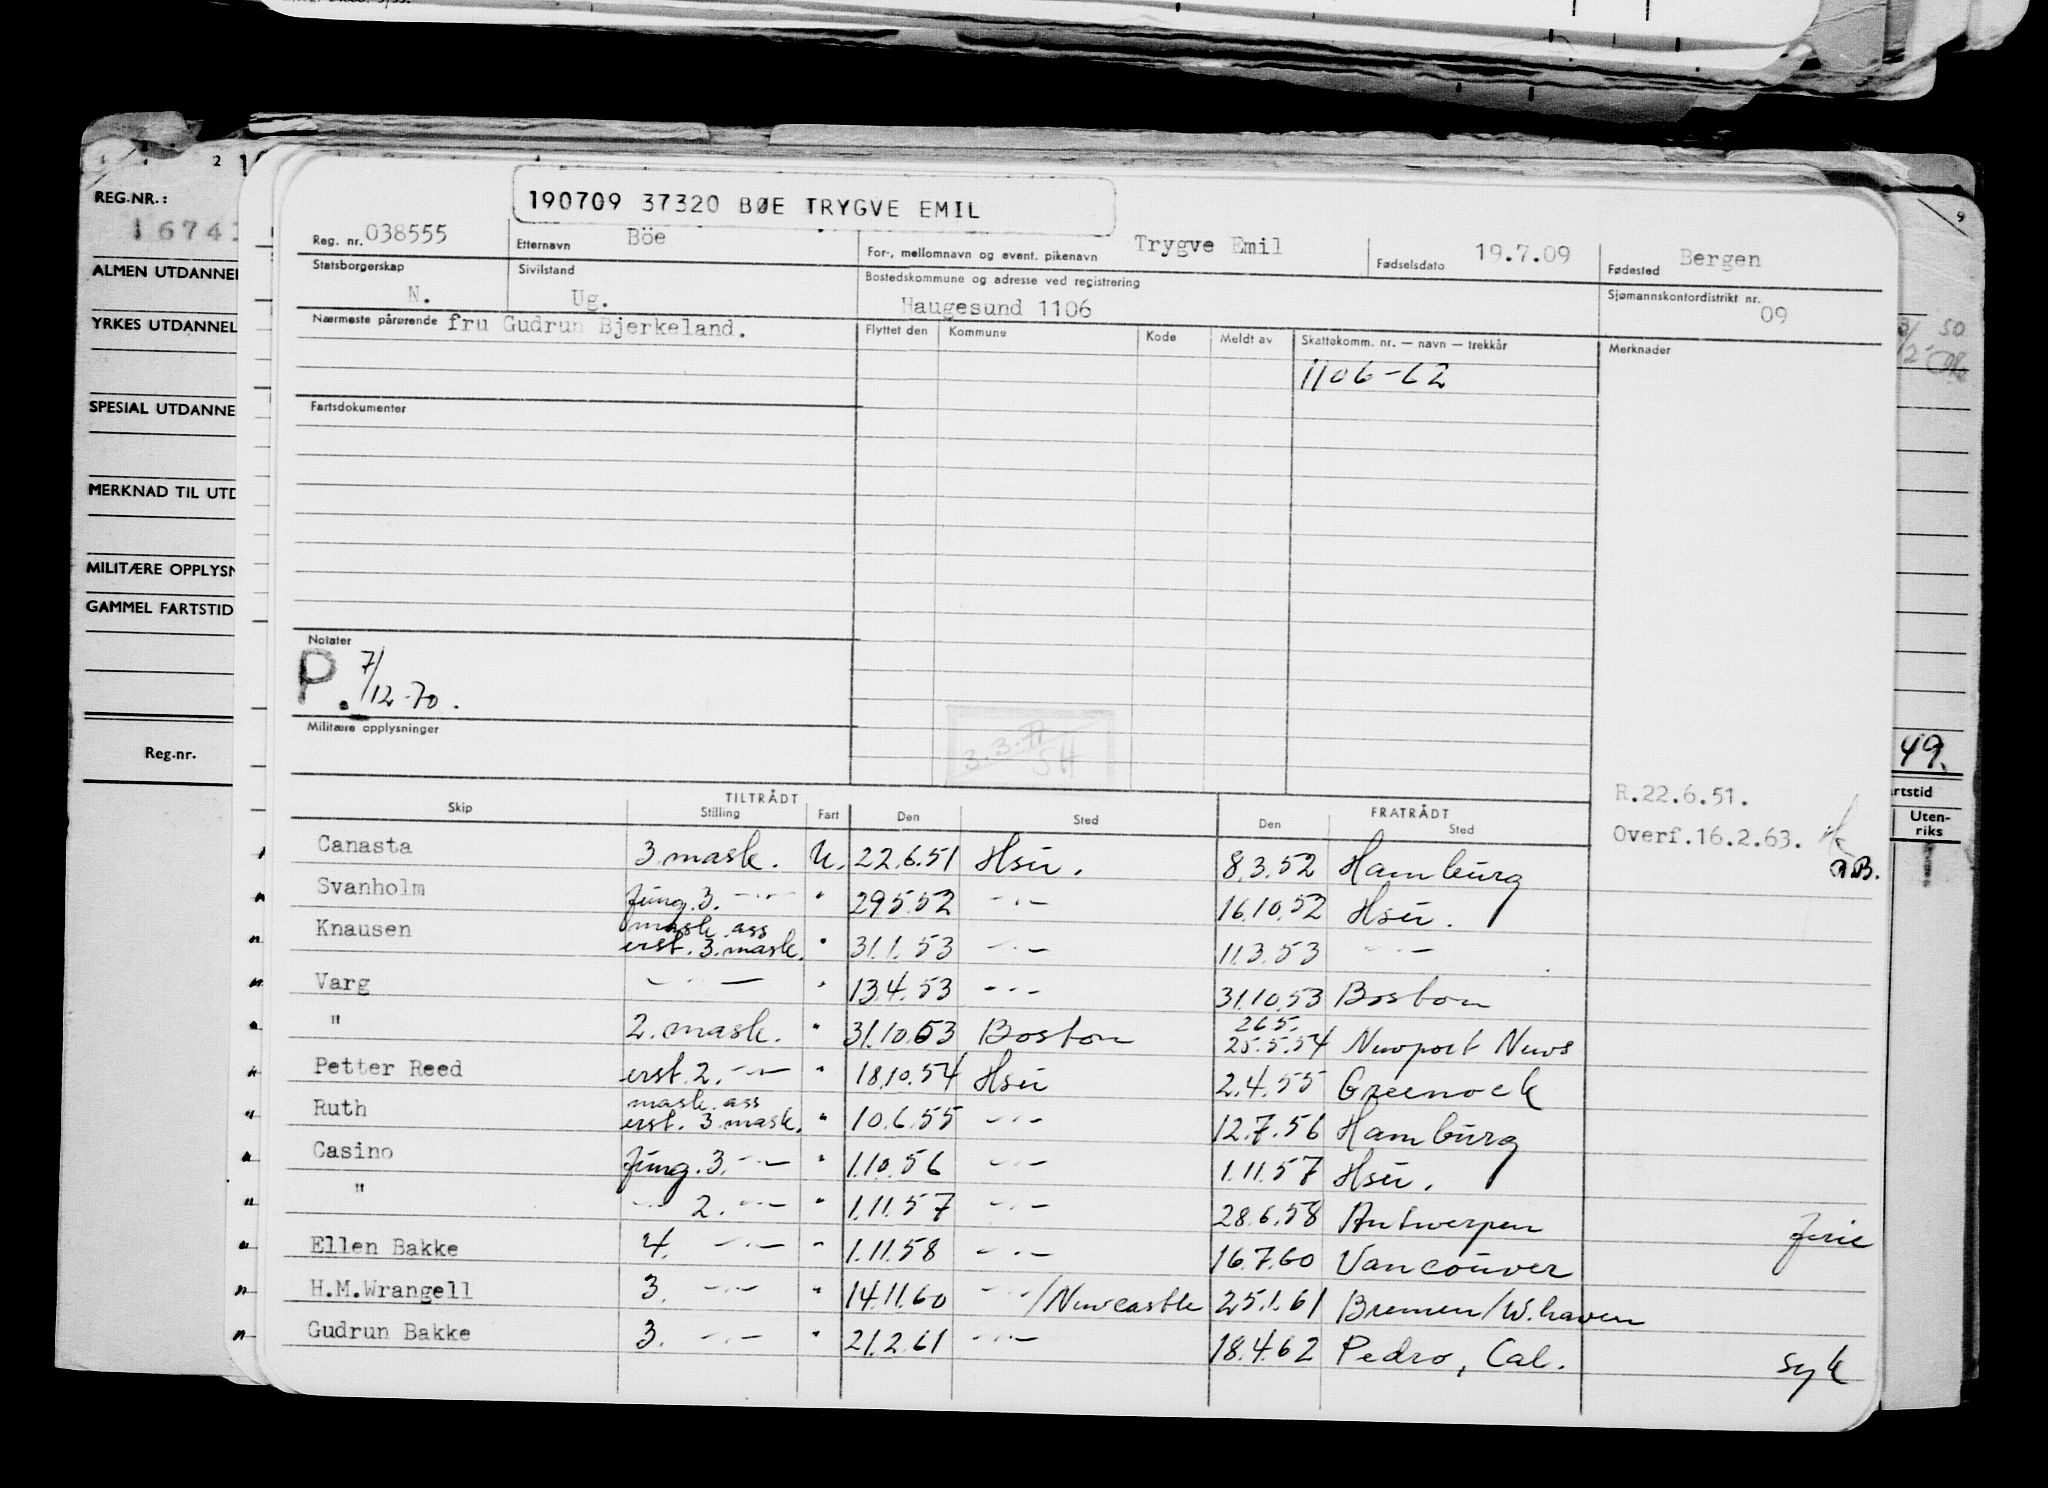 2
REG.NR.:
ALMEN UTDANNE
YRKES UTDANNEL
SPESIAL UTDANNE
MERKNAD TIL UTD
MILITÆRE OPPLYSN
GAMMEL FARTSTID
Reg.nr.
9
50
49.
rtstid
Uten-
riks
190709 37320 BØE TRYGVE EMIL
Reg. nr. 038555 Etternavn Böe For-, mellomnavn og event. pikenavn Trygve Emil Fødselsdato 19.7.09 Fødested Bergen
Statsborgerskap N. Sivilstand Ug. Bostedskommune og adresse ved registrering Haugesund 1106 Sjømannskontordistrikt nr. 09
Nærmeste pårørende fru Gudrun Bjerkeland. Flyttet den Kommune Kode Meldt av Skattekomm. nr. — navn — trekkår Merknader
1106-62
Fartsdokumenter
Notater
P. 7/12-70.
Militære opplysninger
R.22.6.51.
Overf.16.2.63.
TILTRÅDT FRATRÅDT
Skip Stilling Fart Den Sted Den Sted
Canasta 3 mask. U. 22.6.51 Hsu. 8.3.52 Hamburg
Svanholm fung. 3. -"- " 29.5.52 -"- 16.10.52 Hsu.
Knausen mask. ass erst. 3. mask. " 31.1.53 -"- 11.3.53 -"-
Varg -"- " 13.4.53 -"- 31.10.53 Boston
" 2. mask. " 31.10.53 Boston 26.5. 25.5.54 Newport News
Petter Reed erst. 2. -"- " 18.10.54 Hsu 2.4.55 Greenock
Ruth mask. ass erst. 3 mask. " 10.6.55 -"- 12.7.56 Hamburg
Casino fung. 3. -"- " 1.10.56 -"- 1.11.57 Hsu.
" -"- 2. -"- " 1.11.57 -"- 28.6.58 Antwerpen ferie
Ellen Bakke 4. -"- " 1.11.58 -"- 16.7.60 Vancouver
H.M.Wrangell 3. -"- " 14.11.60 -"- /Newcastle 25.1.61 Bremen/W.haven
Gudrun Bakke 3. -"- " 21.2.61 -"- 18.4.62 Pedro, Cal. syk